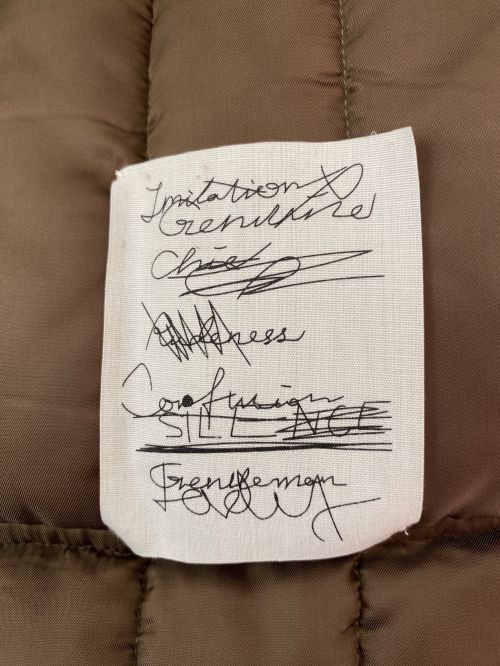 Imitation
Genuine
Chief
Confusion
SILENCE
Gentleman